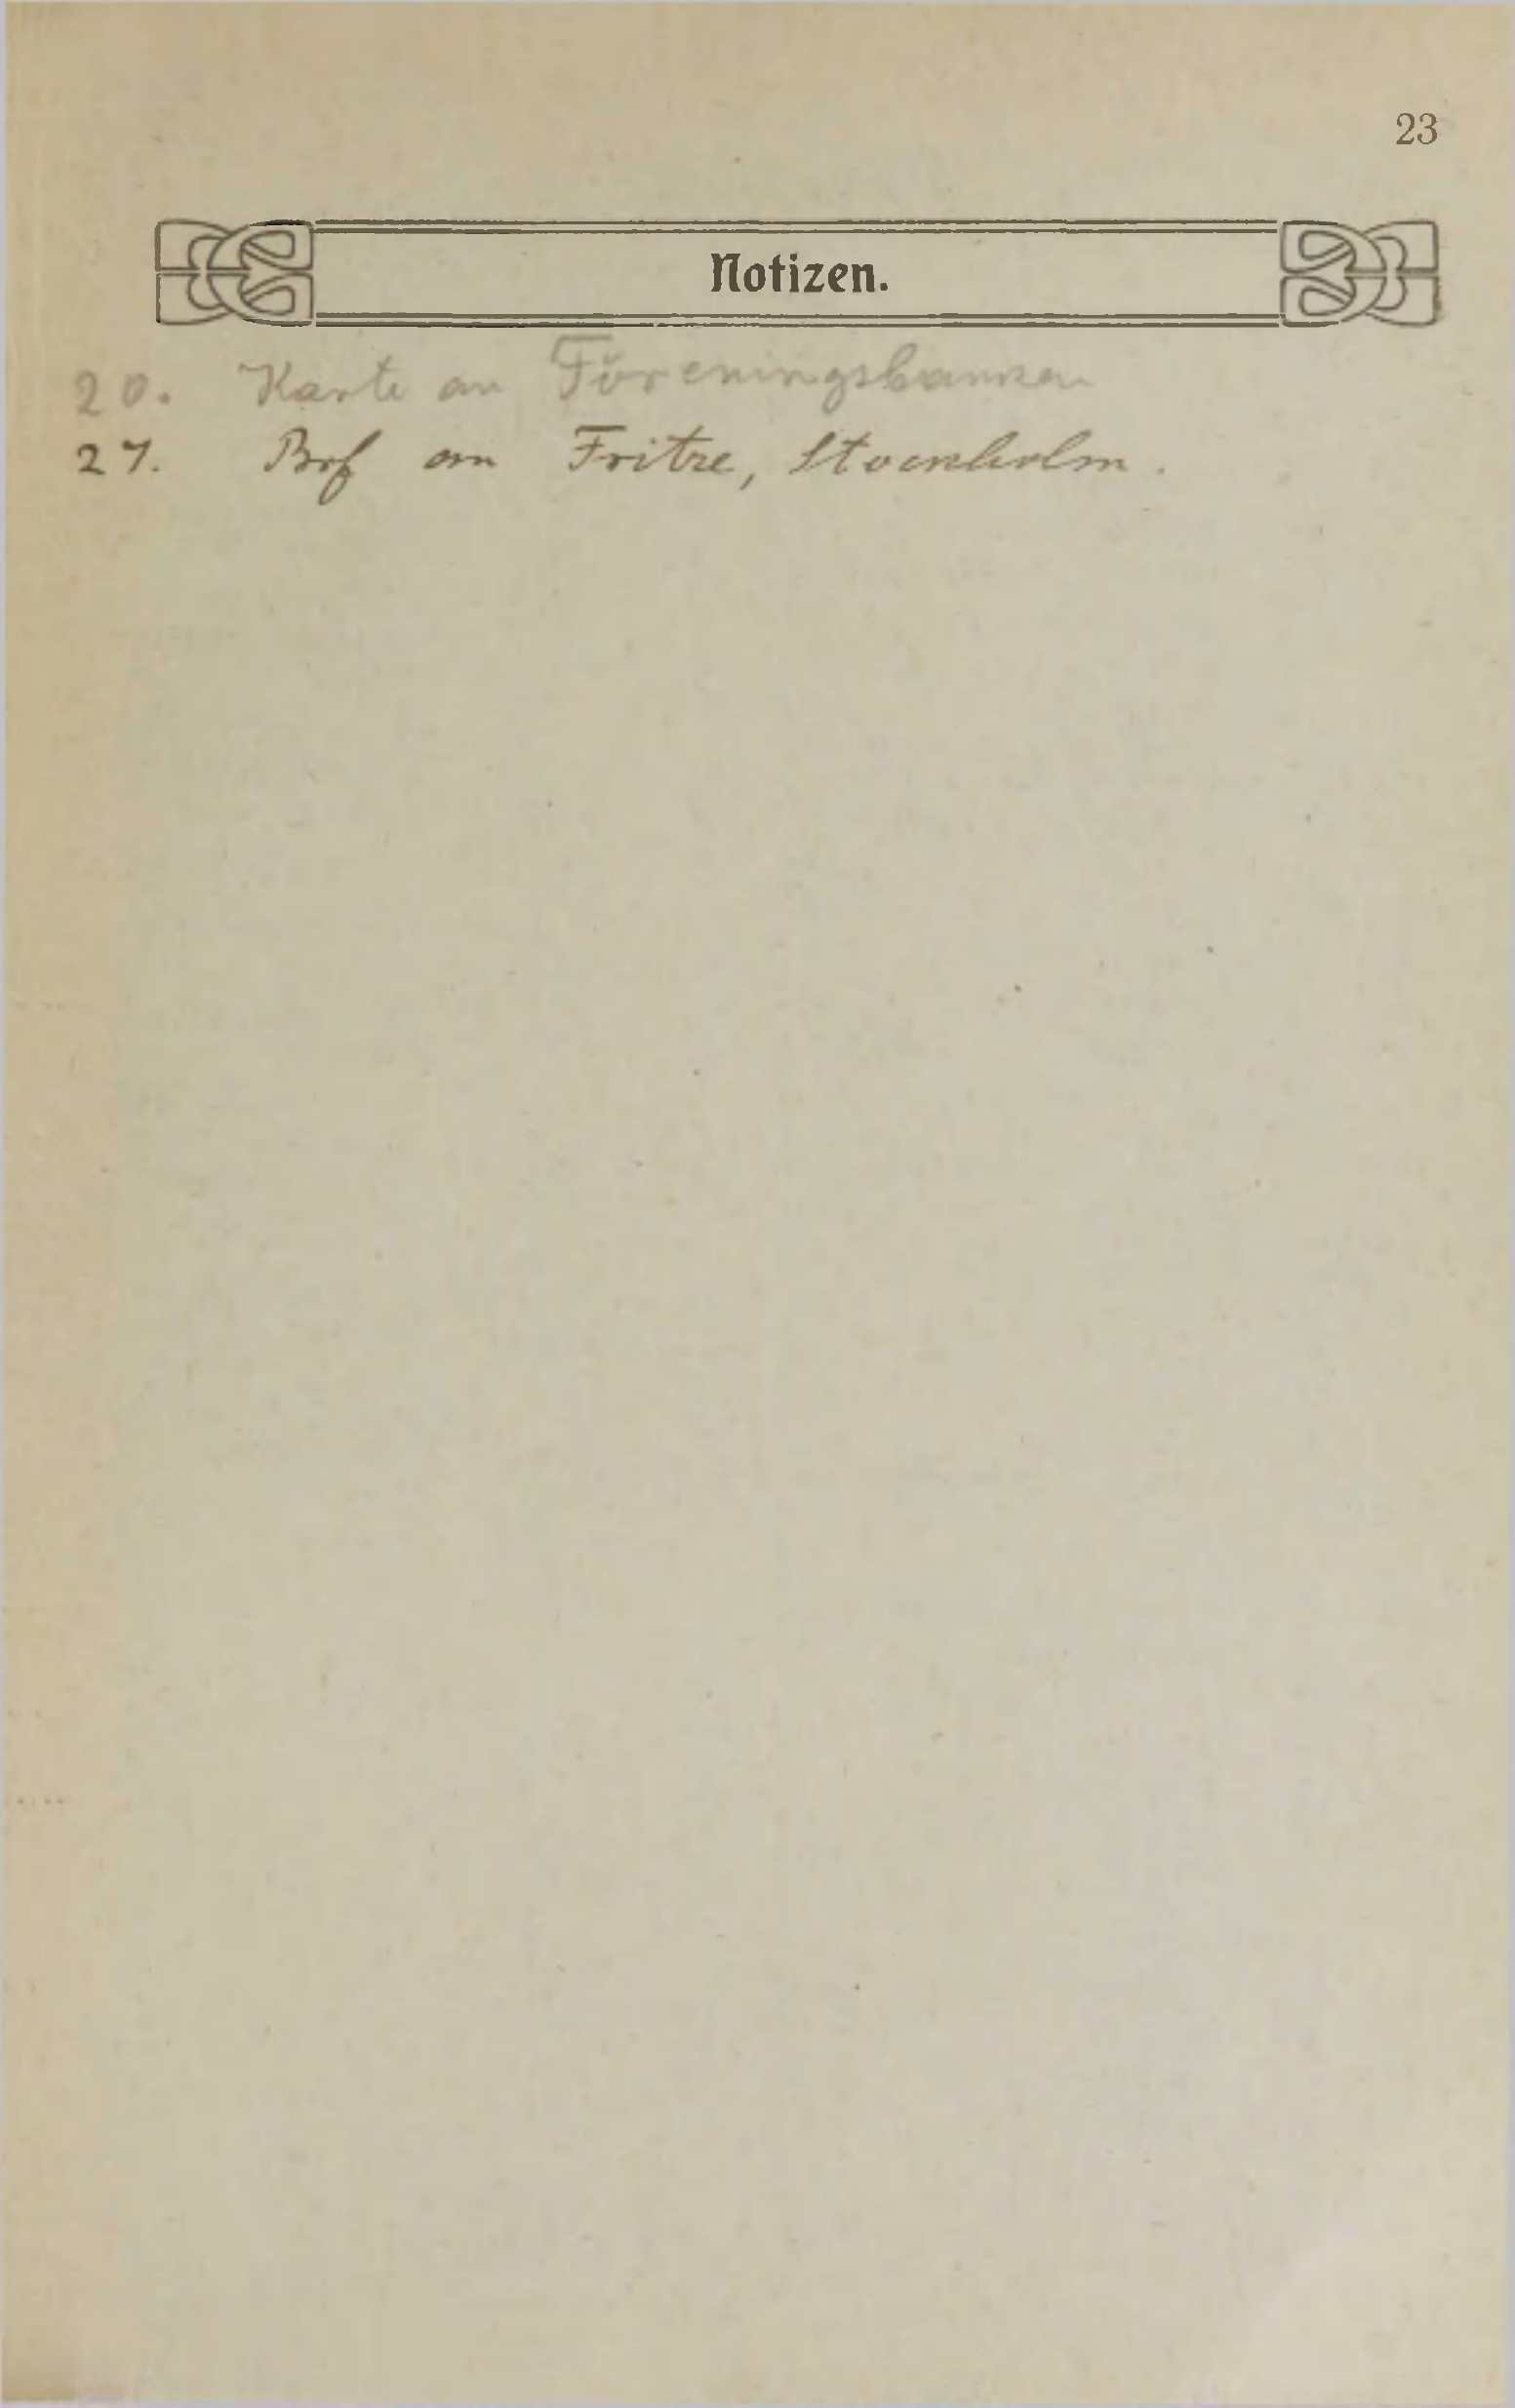 23
Notizen.
20. Karte an Föreningsbanken
27. Brf an Fritze, Stockholm.